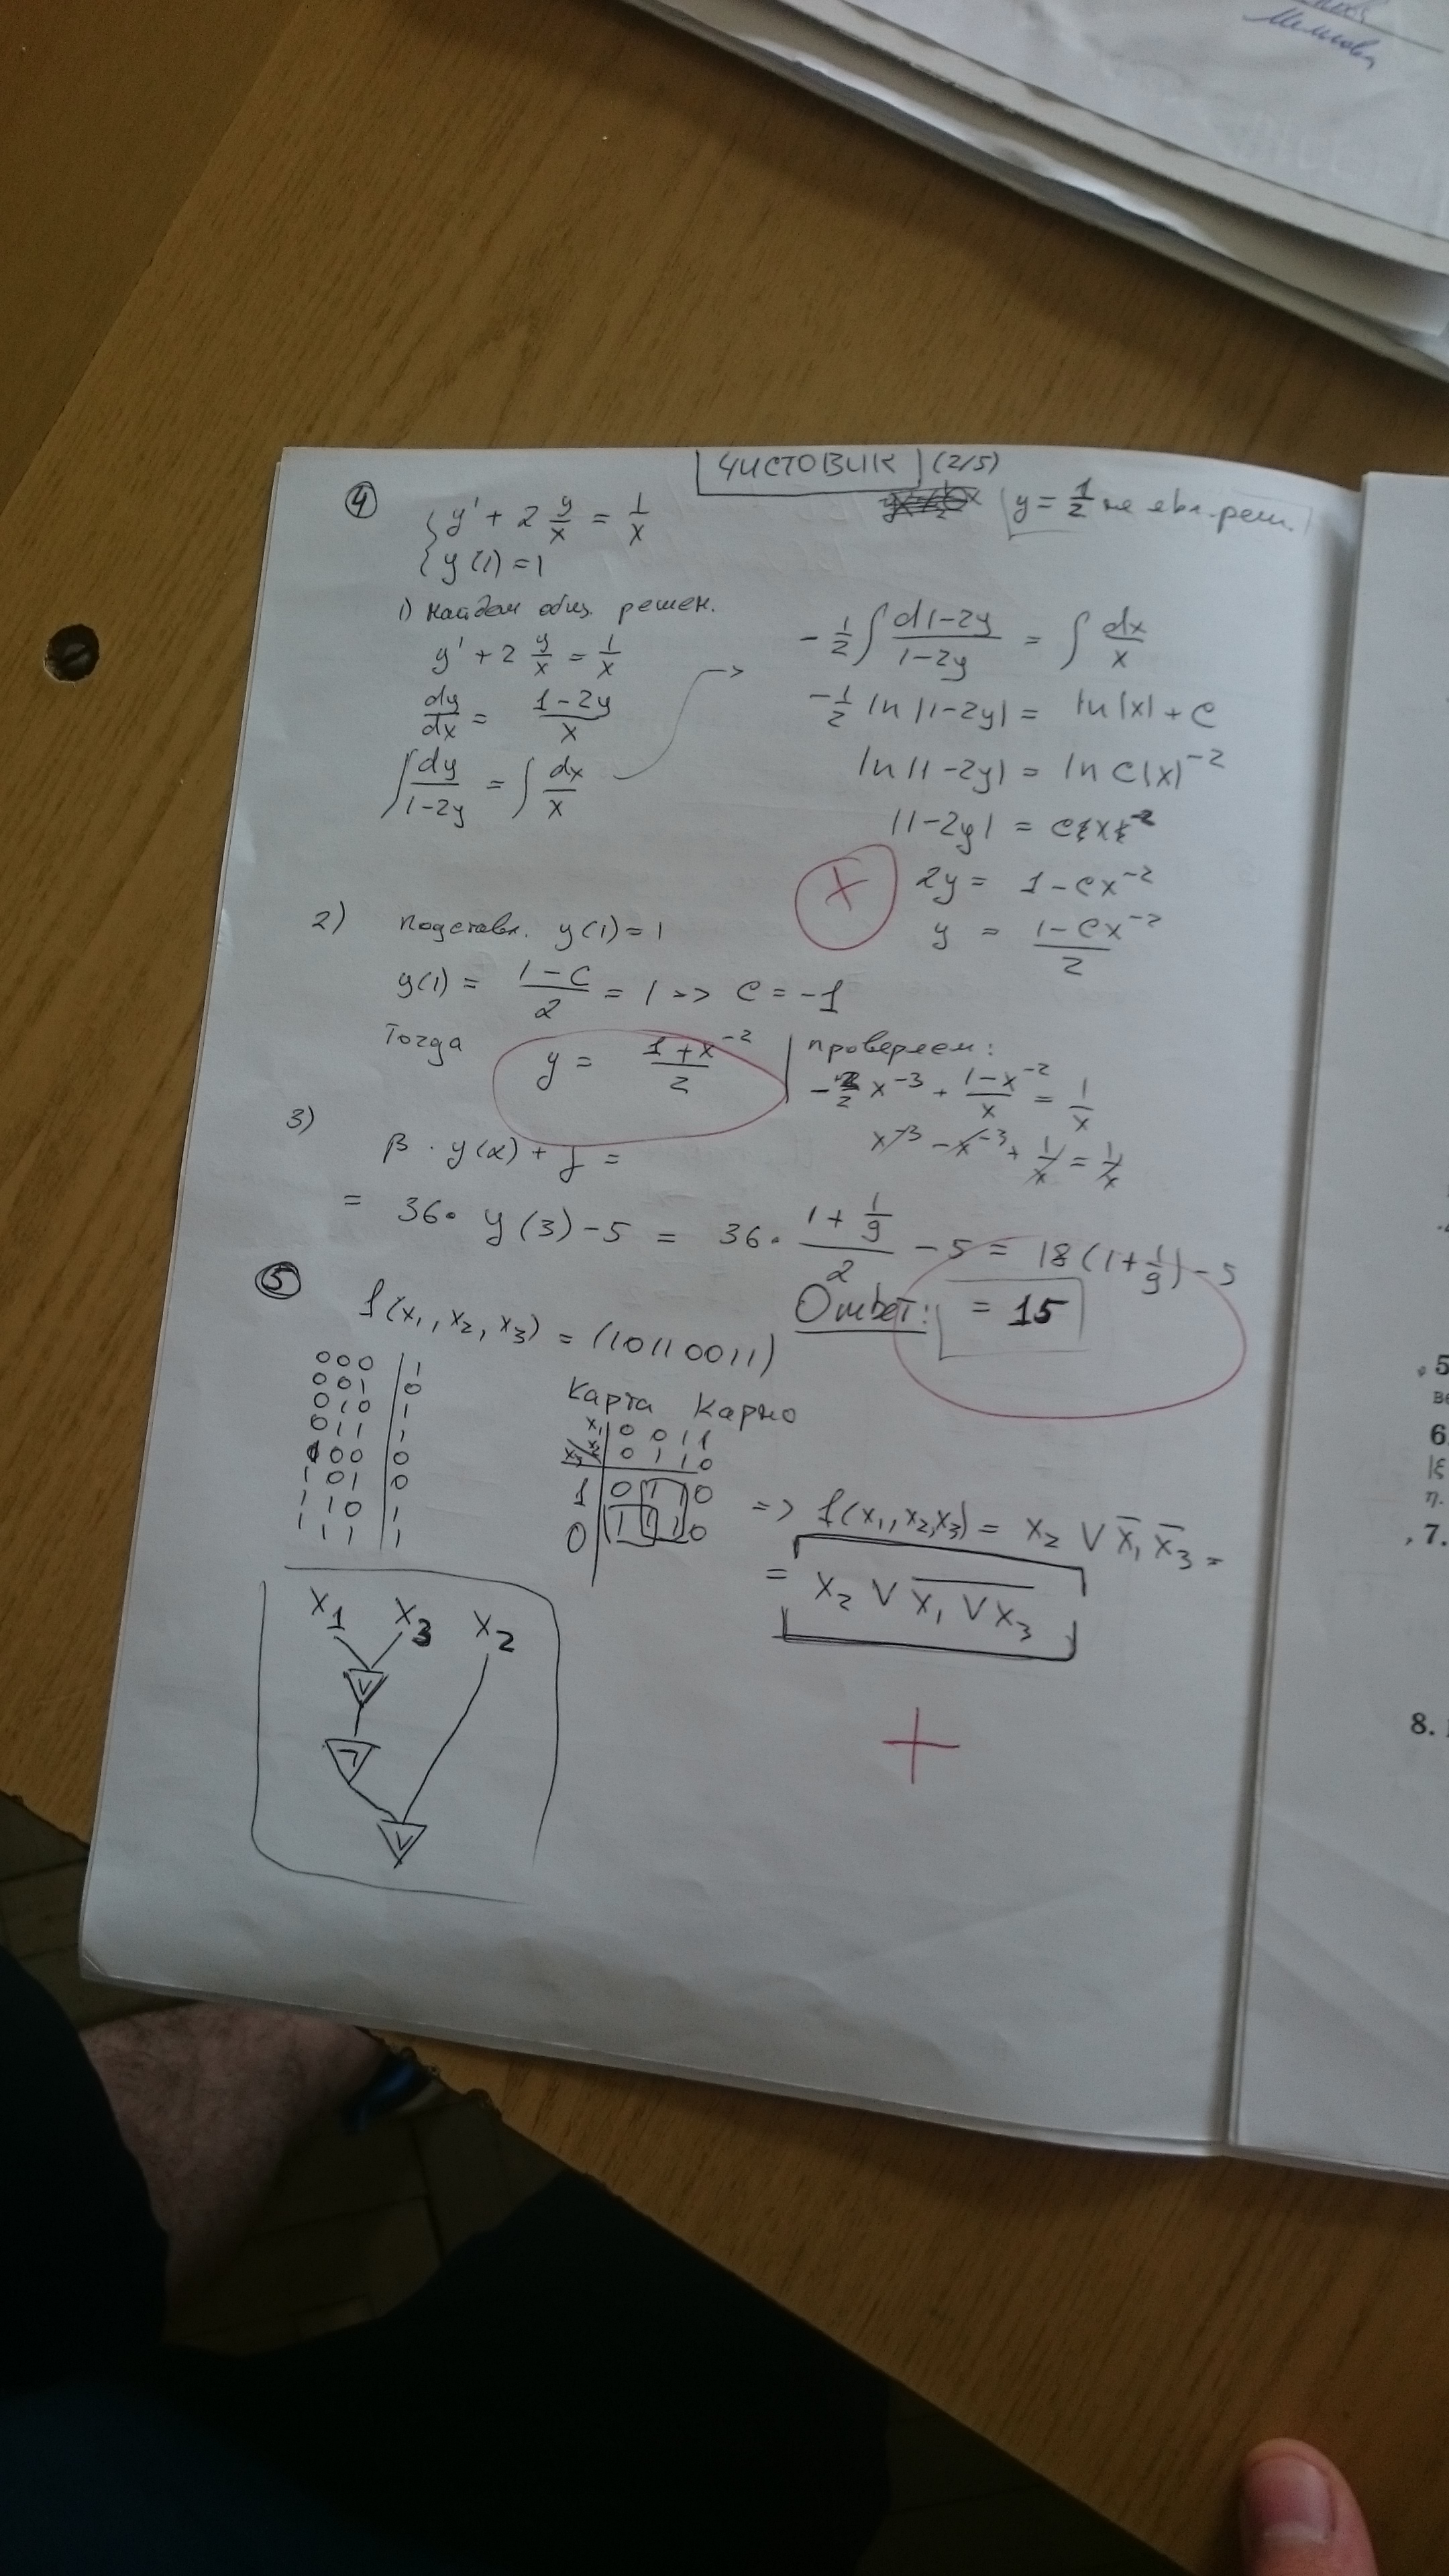 ЧИСТОВИК (2/5)
④ { y' + 2 y/x = 1/x
{ y(1) = 1
y = 1/2 не явл. реш.
1) Найдем общ. решен.
y' + 2 y/x = 1/x
dy/dx = (1-2y)/x
∫ dy/(1-2y) = ∫ dx/x →
-1/2 ∫ d1-2y/(1-2y) = ∫ dx/x
-1/2 ln |1-2y| = ln|x| + C
ln |1-2y| = ln C|x|^-2
|1-2y| = Cx^-2
2y = 1-Cx^-2
y = (1-Cx^-2)/2
+
2) Подставл. y(1) = 1
y(1) = (1-C)/2 = 1 => C = -1
Тогда y = (1+x^-2)/2
проверяем:
-2/2 x^-3 + (1-x^-2)/x = 1/x
x^-3 - x^-3 + 1/x = 1/x
3) β · y(α) + γ =
= 36 · y(3) - 5 = 36 · (1+1/9)/2 - 5 = 18(1+1/9) - 5
Ответ: = 15
⑤ f(x₁, x₂, x₃) = (10110011)
000 | 1
001 | 0
010 | 1
011 | 1
100 | 0
101 | 0
110 | 1
111 | 1
Карта Карно
x₁ 0 0 1 1
x₃ x₂ 0 1 1 0
1 0 1 1 0
0 1 1 1 0
=> f(x₁, x₂, x₃) = x₂ ∨ x̄₁ x̄₃ =
= x₂ ∨ x̅₁̅ ̅∨̅ ̅x̅₃
x₁ x₃ x₂
∨
¬
∨
+
5
6
7.
8.